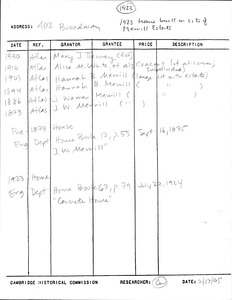 1923
ADDRESS: 402 Broadway
1923 home built on site of
Merrill Estate
DATE REF. GRANTOR GRANTEE PRICE DESCRIPTION
1930 Atlas Mary J. (
1916 Atlas Alice M. White et al (vacant lot at corner,
subdivided)
1903 Atlas Hannah B. Merrill (large lot w/ estate)
1894 Atlas Hannah B. Merrill ( " )
1886 Atlas J. Warren Merrill ( " )
1873 Atlas J. W Merrill ( " )
Pre- 1873 House
Eng Dept House Book 12, p. 53 Sept 16, 1875
"J. W. Merrill"
1923 Home
Eng Dept House Book 67, p. 79 July 22, 1924
"Concrete House"
CAMBRIDGE HISTORICAL COMMISSION RESEARCHER: DATE: